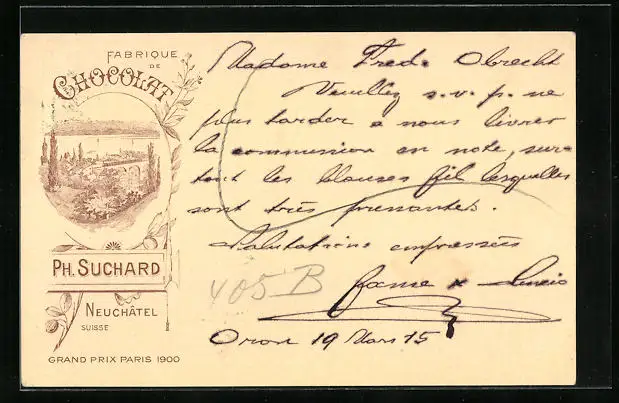 FABRIQUE
DE
CHOCOLAT
PH. SUCHARD
NEUCHÂTEL
SUISSE
GRAND PRIX PARIS 1900
Madame Fred. Obrecht
Veuillez s.v.p. ne
plus tarder à nous livrer
la commission en note, sur-
tout les blouses fil lesquelles
sont très prenantes.
Salutations empressées
405 B
Oron 19 Mars 15